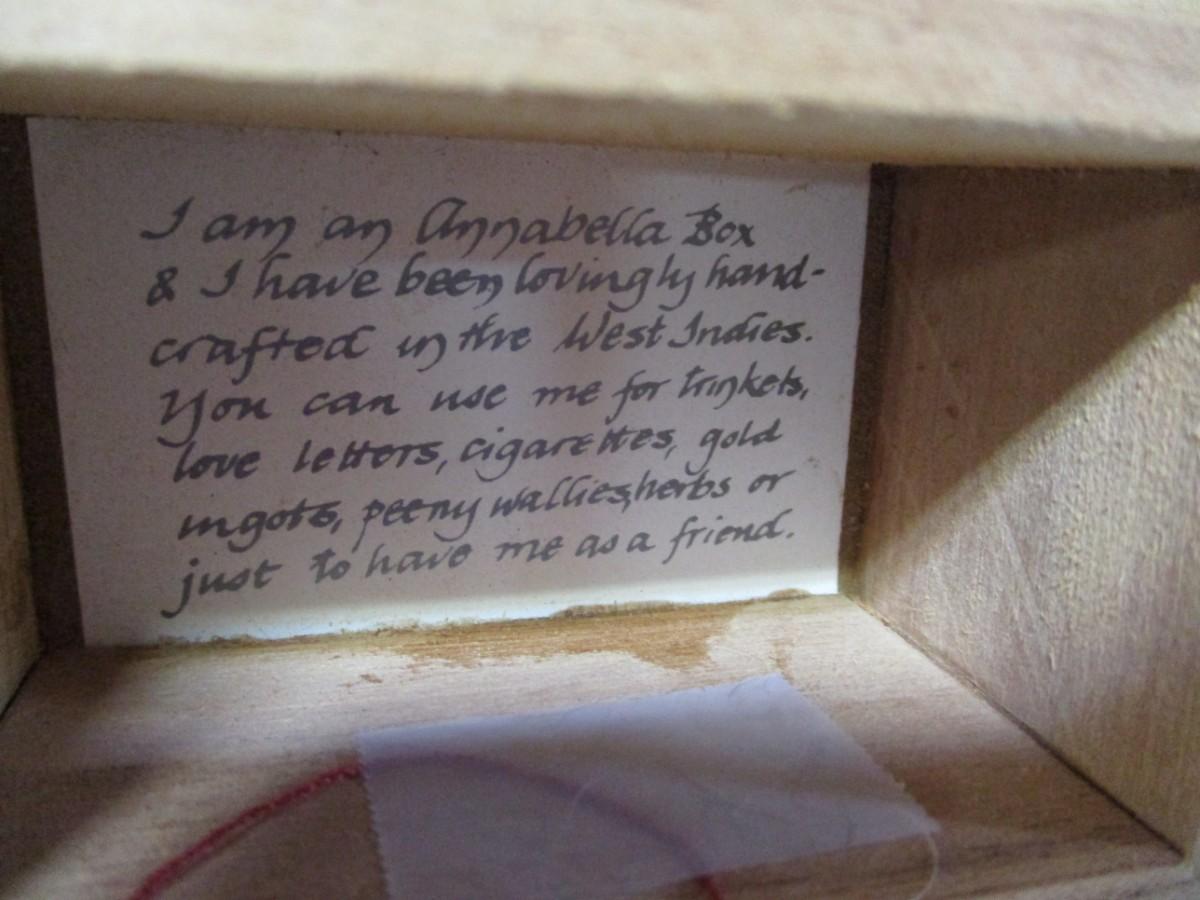 I am an Annabella Box
& I have been lovingly hand-
crafted in the West Indies.
You can use me for trinkets,
love letters, cigarettes, gold
ingots, peeny wallies, herbs or
just to have me as a friend.